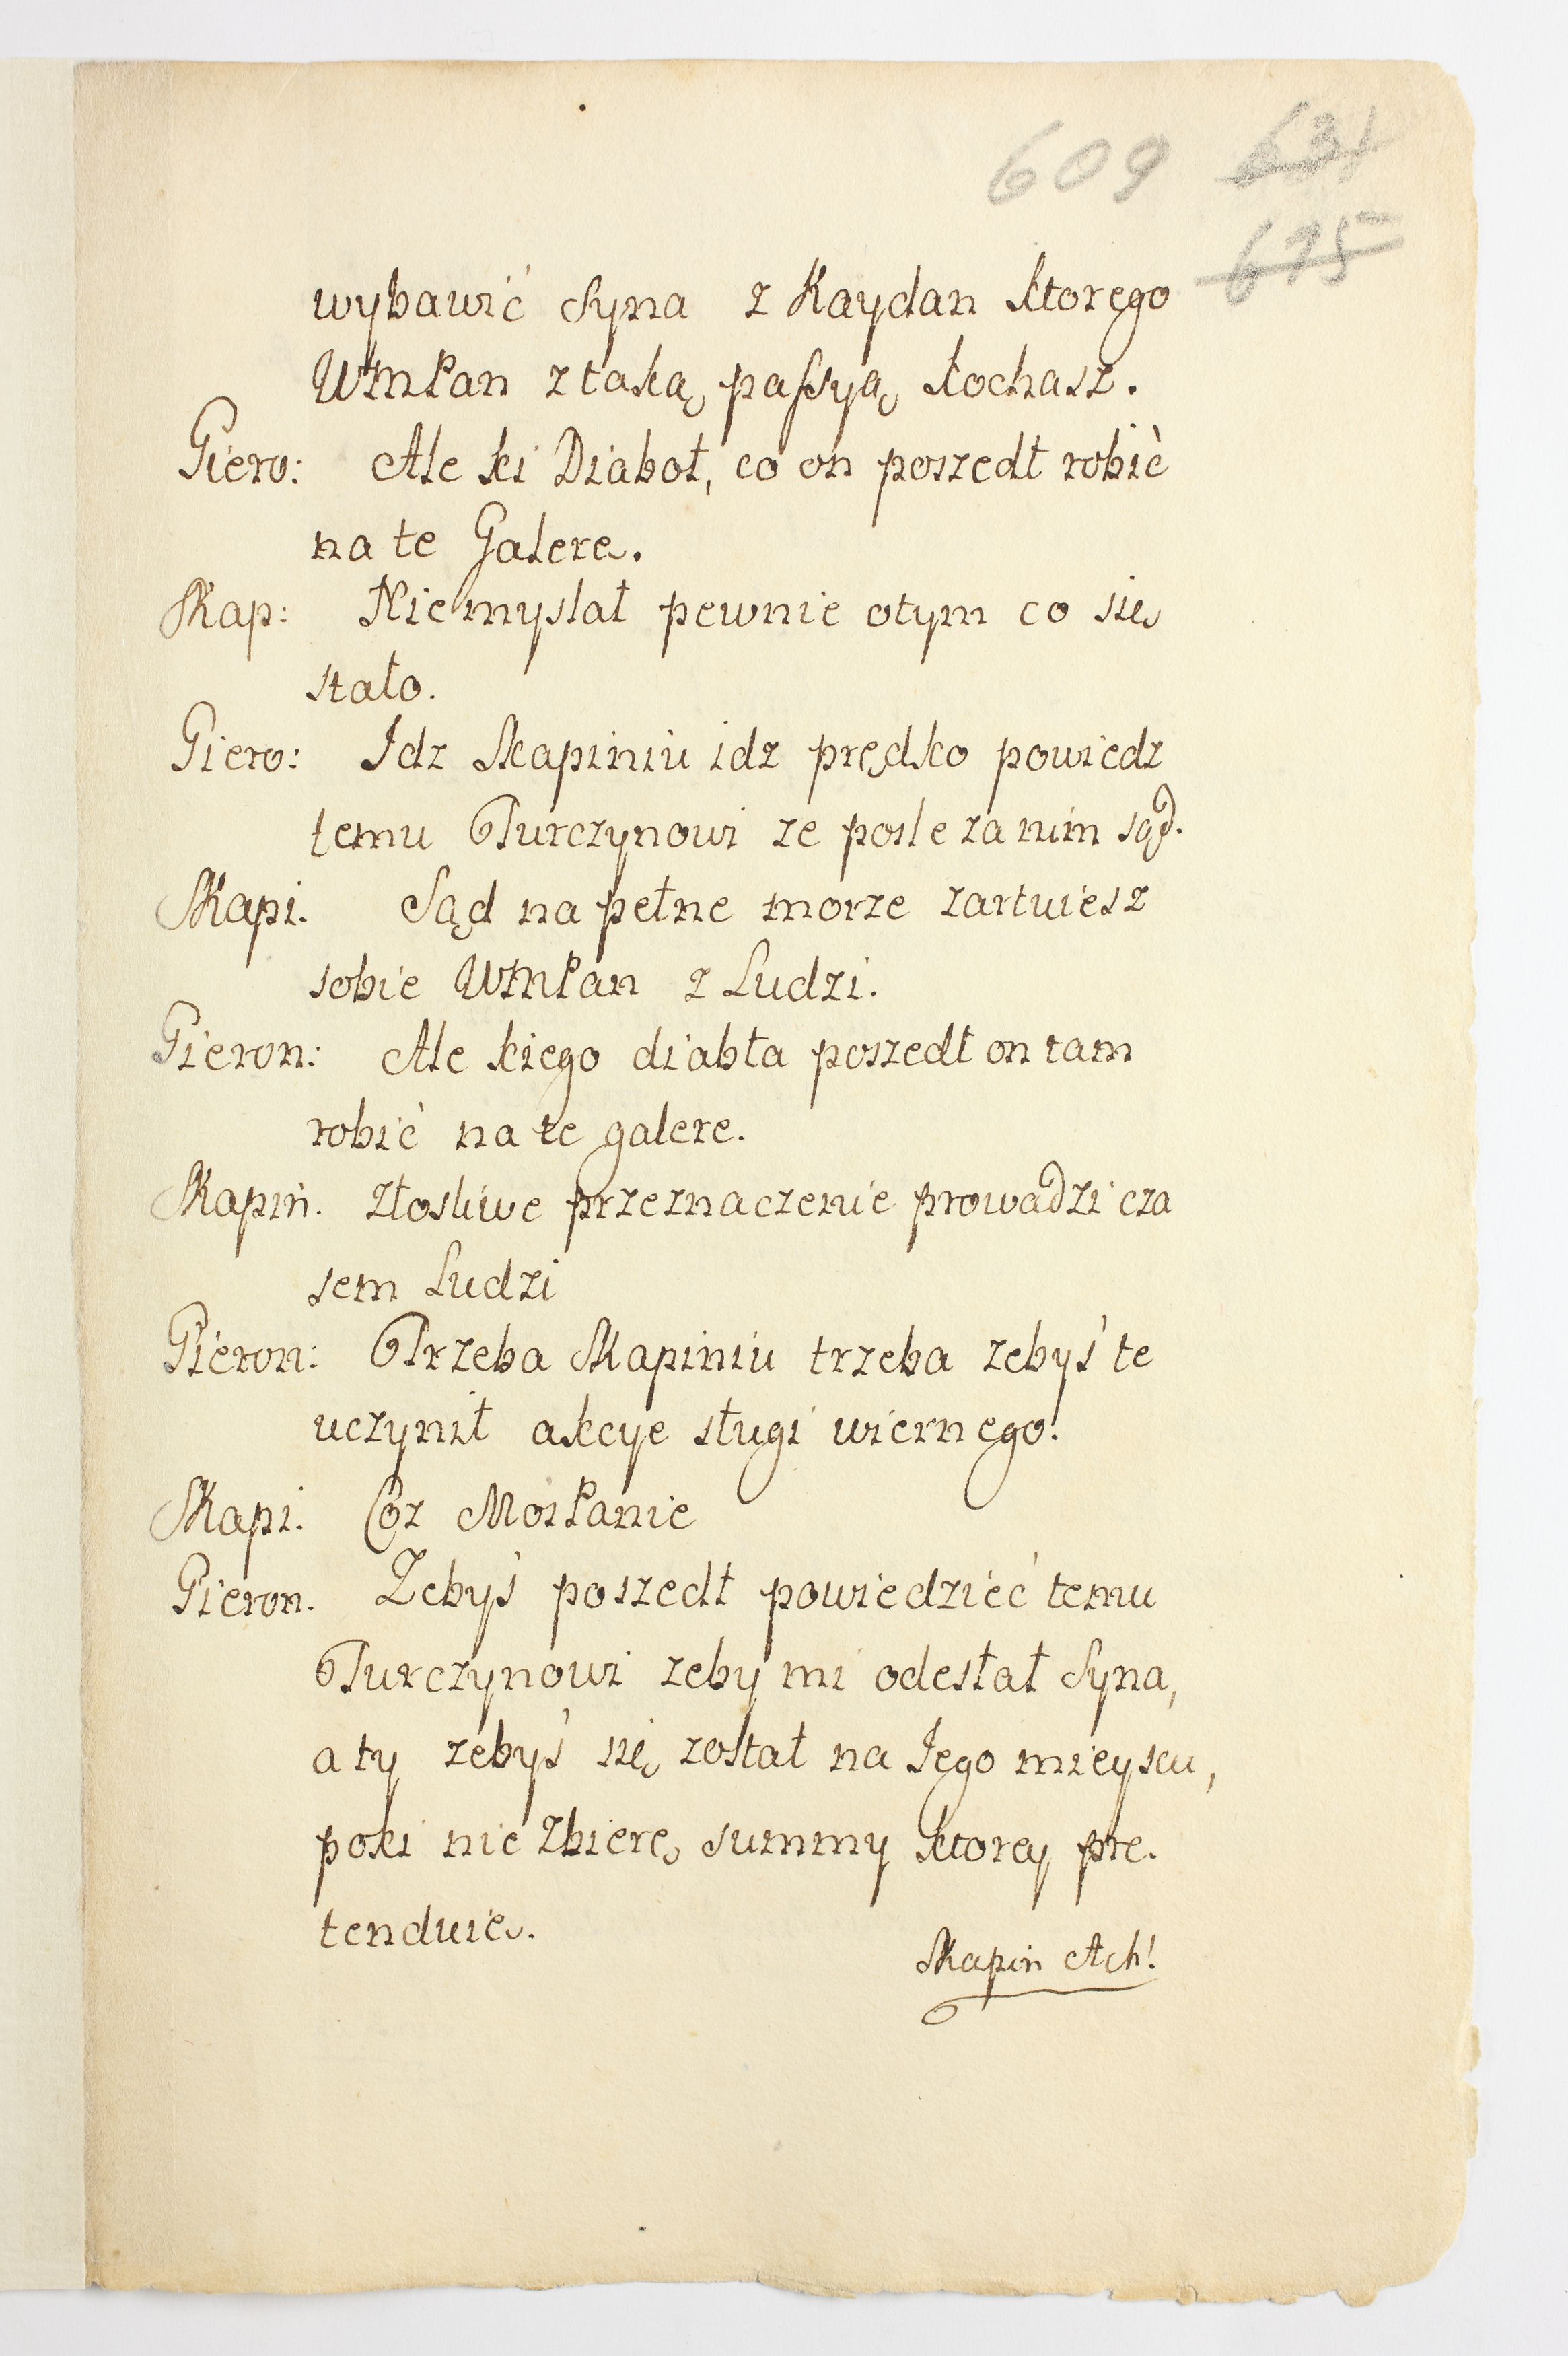 609 631
675
wybawić Syna z Kaydan ktorego
WMPan z taką passyą kochasz.
Giero: Ale ki Diaboł, co on poszedł robić
na te Galerę.
Skap: Nie myslał pewnie otym co się
stało.
Giero: Idz Skapiniu idz prędko powiedz
temu Turczynowi ze posle za nim sąd.
Skapi. Sąd na pełne morze zartuiesz
sobie WMPan z Ludzi.
Gieron: Ale kiego diabła poszedł on tam
robić na te galere.
Skapin. złosliwe przeznaczenie prowadzi cza
sem Ludzi
Gieron: Trzeba Skapiniu trzeba zebyś te
uczynił akcye sługi wiernego.
Skapi. Coz MosPanie
Gieron. Zebyś poszedł powiedzieć temu
Turczynowi zeby mi odesłał Syna,
a ty zebyś się został na Iego mieyscu,
poki nie zbierę summy ktorey pre.
tenduię.
Skapin Ach!